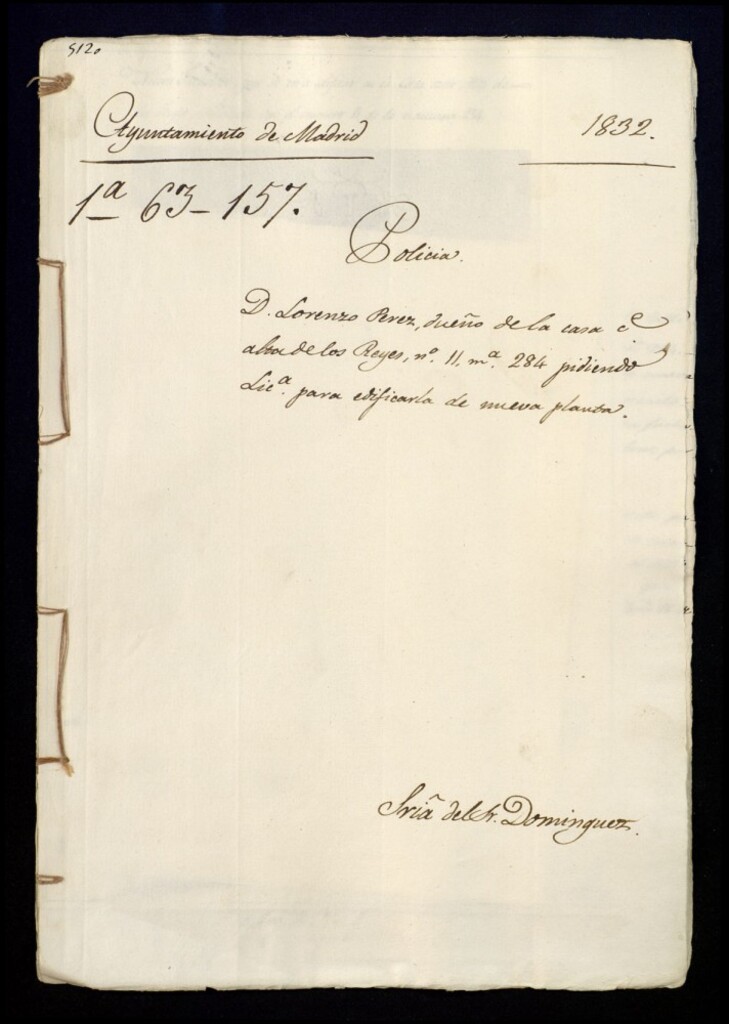 5120
Ayuntamiento de Madrid
1832.
1ª 63-157.
Policia.
D. Lorenzo Perez, dueño de la casa cᵉ
alta de los Reyes, nº. 11, mª. 284 pidiendo
Licª. para edificarla de nueva planta.
Sriã del Sr. Dominguez.